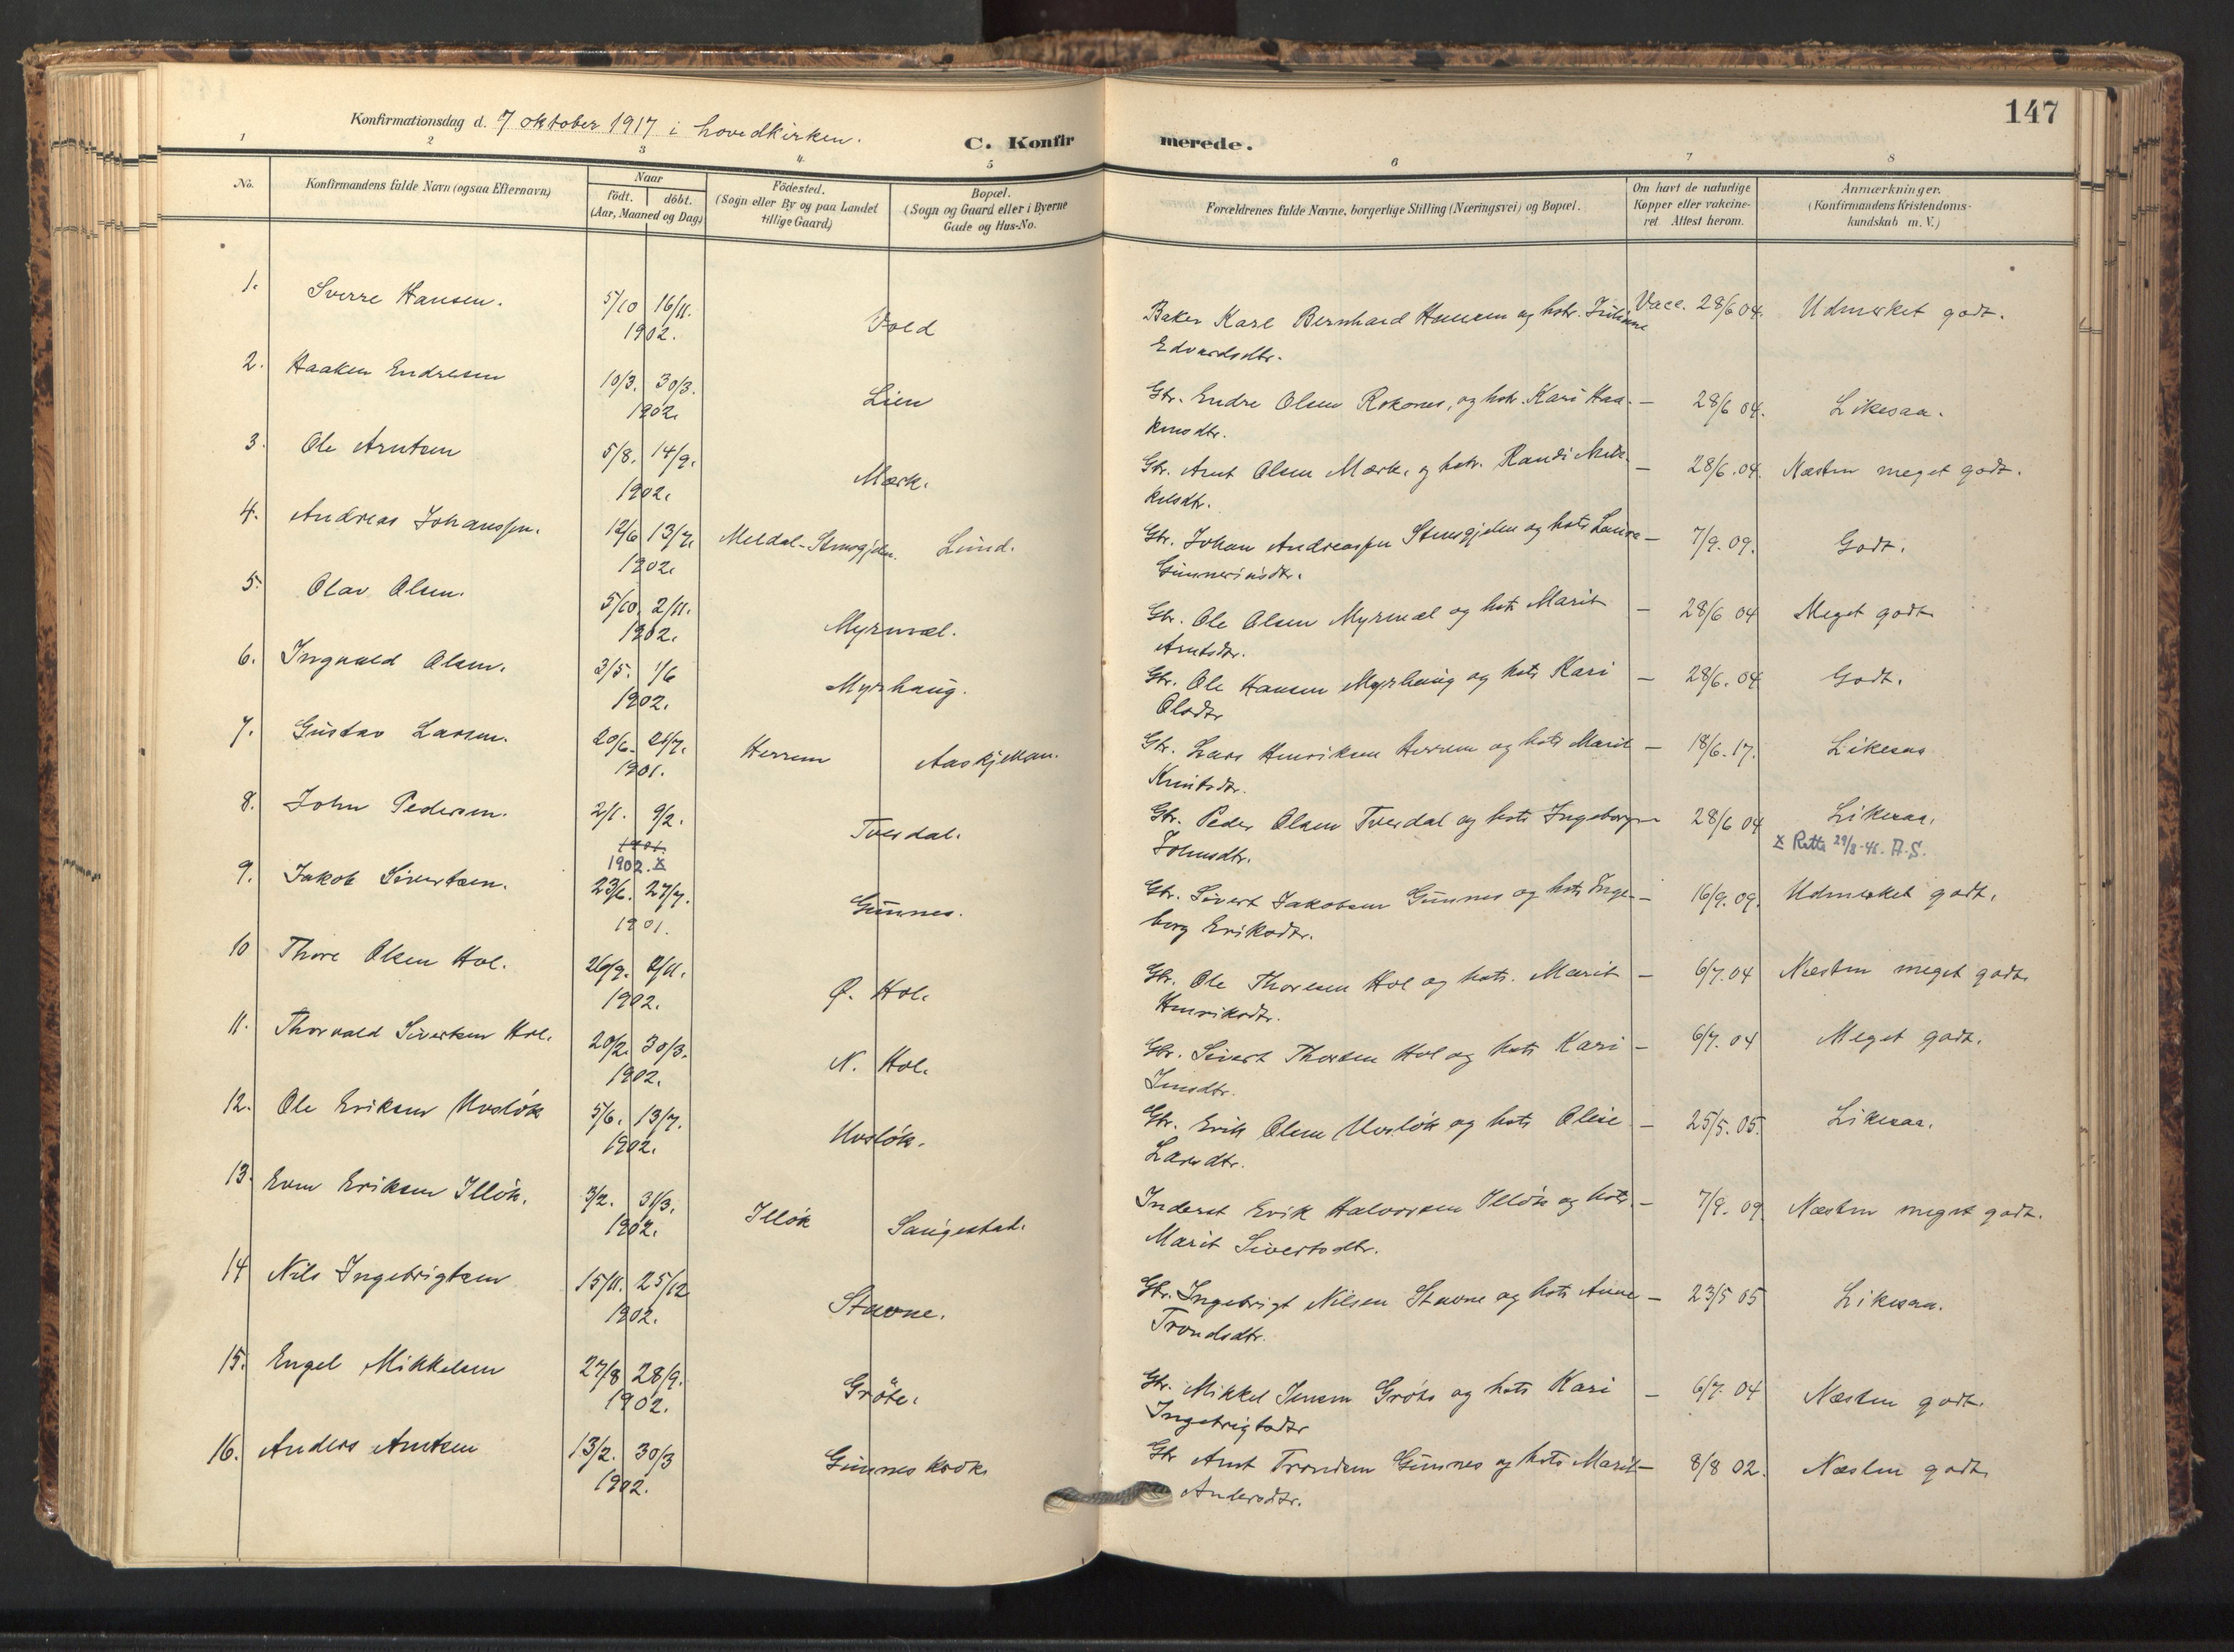 147
Konfirmationsdag d. 7 oktober 1917 i hovedkirken.
C. Konfirmerede.
1 2 3 4 5 6 7 8
No.
Konfirmandens fulde Navn (ogsaa Efternavn)
Naar
født. døbt.
(Aar, Maaned og Dag)
Fødested.
(Sogn eller By og paa Landet
tillige Gaard)
Bopæl.
(Sogn og Gaard eller i Byerne
Gade og Hus-No.
Forældrenes fulde Navne, borgerlige Stilling (Næringsvei) og Bopæl.
Om havt de naturlige
Kopper eller vakcine-
ret Attest herom.
Anmærkninger.
(Konfirmandens Kristendoms-
kundskab m. V.)
1. Sverre Hansen. 5/10 16/11. Vold Baker Karl Bernhard Hansen og hstr. Vacc. 28/6 04. Udmerket godt.
1902. Edvardsdtr.
2. Haaken Endresen 10/3. 30/3. Lien Gbr. Endre Olsen og hstr. Kari Haa- — 28/6 04. Likesaa.
1902. kensdtr.
3. Ole Arntsen 5/8. 14/9. Mærk. Gbr. Arnt Olsen Mærk. og hstr. Randi Mik- — 28/6.04. Næsten meget godt.
1902. kelsdtr.
4. Andreas Johanssen. 12/6 13/7. Meldal- Lund. Gbr. Johan Andreassen og hstr — 7/9.09. Godt.
1902.
5. Olav Olsen. 5/10. 2/11. Myrmæl. Gbr. Ole Olsen Myrmæl og hstr Marit — 28/6 04 Meget godt
1902. Arntsdtr.
6. Ingvald Olsen. 3/5. 1/6 Myrhaug. Gbr. Ole Hansen Myrhaug og hstr Kari — 28/6.04 Godt.
1902. Olsdtr
7. Gustav Larsen. 20/6. 21/7. Herrem Aaskjellan. Gbr. Lars Henriksen Herrem og hstr Marit — 18/6.17. Likesaa
1901. Knutsdtr.
8. John Pedersen. 2/1. 9/2. Tverdal. Gbr. Peder Olsen Tverdal og hstr Ingeborg — 28/6 04 Likesaa.
1901. Johnsdtr. x Rettet 29/8-41. A.S.
1902. x
9. Jakob Sivertsen. 23/6. 27/7. Gunnes. Gbr. Sivert Jakobsen Gunnes og hstr Inge- — 16/9.09. Udmerket godt.
1901. borg Eriksdtr.
10 Thore Olsen Hol. 26/9. 2/11. Ø. Hol. Gbr. Ole Thoresen Hol og hstr. Marit — 6/7.04 Næsten meget godt.
1902. Henriksdtr.
11. Thorvald Sivertsen Hol. 20/2. 30/3. N. Hol. Gbr. Sivert Thoresen Hol og hstr Kari — 6/7.04 Meget godt.
1902. Jensdtr.
12. Ole Eriksen Uvsløk 5/6. 13/7. Uvsløk. Gbr. Erik Olsen Uvsløk og hstr — 25/5.05. Likesaa.
1902. Larsdtr.
13. Even Eriksen Illøk. 3/2. 31/3. Illøk Inderst Erik Halvorsen Illøk og hstr. — 7/9.09 Næsten meget godt.
1902. Marit Sivertsdtr.
14 Nils Ingebrigtsen 15/11. 25/12 Stavne. Gbr. Ingebrigt Nilsen Stavne og hstr Anne — 23/5 05 Likesaa.
1902. Trondsdtr.
15. Engel Mikkelsen 27/8 28/9. Grøte. Gbr. Mikkel Jensen Grøte og hstr Kari — 6/7.04 Næsten godt.
1902. Ingebrigtsdtr
16. Anders Arntsen 13/2. 30/3 Gunneskrok. Gbr Arnt Trondsen Gunnes og hstr Marit — 8/8 02. Næsten godt
1902. Andersdtr.